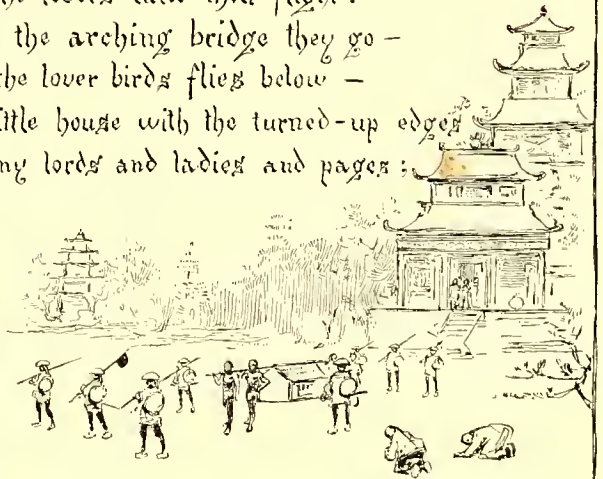 the arching bridge they go –
the lover birds flies below –
ttle house with the turned-up edges
ny lords and ladies and pages :